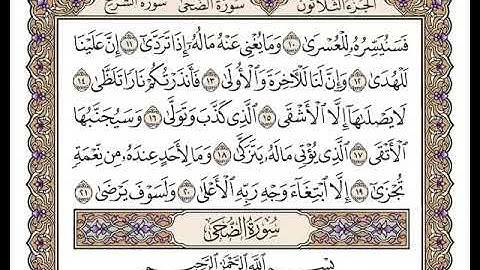 الجزء الثلاثون سورة الضحى سورة الشرح
فَسَنُيَسِّرُهُۥ لِلْعُسْرَىٰ ١٠ وَمَا يُغْنِى عَنْهُ مَالُهُۥٓ إِذَا تَرَدَّىٰٓ ١١ إِنَّ عَلَيْنَا
لَلْهُدَىٰ ١٢ وَإِنَّ لَنَا لَلْءَاخِرَةَ وَٱلْأُولَىٰ ١٣ فَأَنذَرْتُكُمْ نَارًا تَلَظَّىٰ ١٤
لَا يَصْلَىٰهَآ إِلَّا ٱلْأَشْقَى ١٥ ٱلَّذِى كَذَّبَ وَتَوَلَّىٰ ١٦ وَسَيُجَنَّبُهَا
ٱلْأَتْقَى ١٧ ٱلَّذِى يُؤْتِى مَالَهُۥ يَتَزَكَّىٰ ١٨ وَمَا لِأَحَدٍ عِندَهُۥ مِن نِّعْمَةٍ
تُجْزَىٰٓ ١٩ إِلَّا ٱبْتِغَآءَ وَجْهِ رَبِّهِ ٱلْأَعْلَىٰ ٢٠ وَلَسَوْفَ يَرْضَىٰ ٢١
سُورَةُ الضُّحَى
بِسْمِ ٱللَّهِ ٱلرَّحْمَٰنِ ٱلرَّحِيمِ